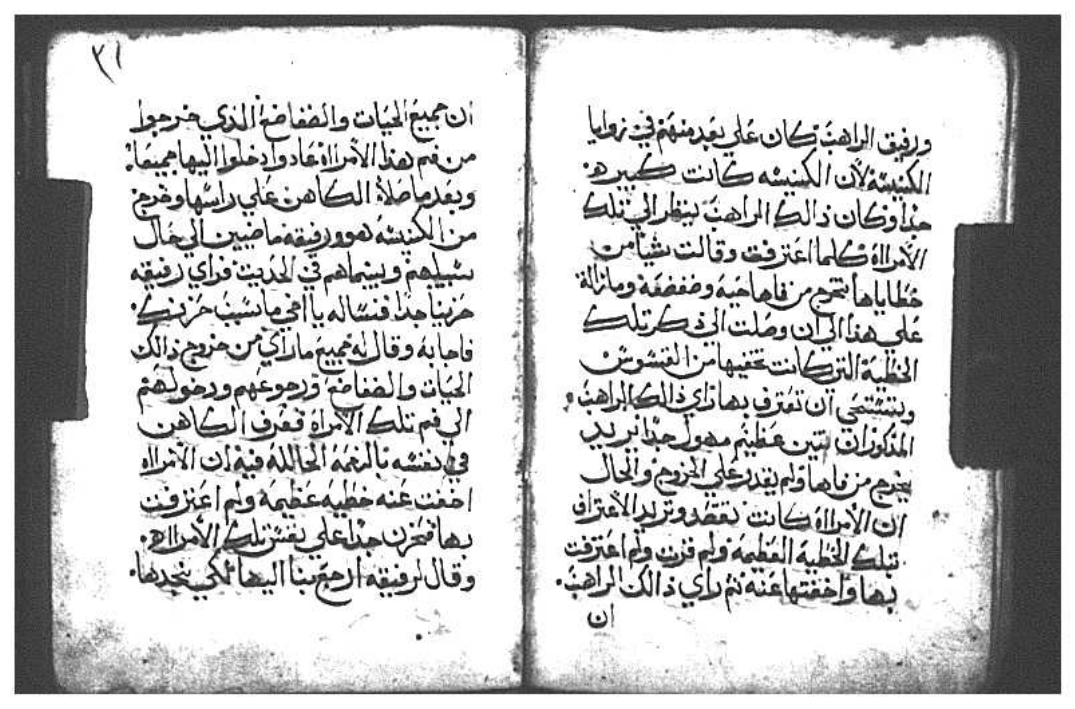 ورفيق الراهب كان علي بعد منهم في زوايا
الكنيسة لان الكنيسه كانت كبيره
جدا وكان ذالك الراهب ينظر الي تلك
الامرااه كلما اعترفت وقالت شيا من
خطاياها تخرج من فاها حيه وضفضغه ومازالة
علي هذا الي ان وصلت الي ذكر تلك
الخطية التي كانت تخفيها من القسوس
وتستحي ان تعترف بها راي ذالك الراهب
المذكور ان تنين عظيم مهول جدا يريد
يخرج من فاها ولم يقدر علي الخروج والحال
ان الامرااه كانت تقصد وتريد الاعتراف
بتلك الخطية العظيمه ولم قرت ولم اعترفت
بها واخفتها عنه ثم راي ذالك الراهب
ان
٣١
ان جميع الحيات والضفاضع الذي خرجوا
من فم هذا الامرااه عادوا دخلوا اليها جميعا
وبعد ما صلاة الكاهن علي راسها وخرج
من الكنيسه هو ورفيقه ماضيين الي حال
سبيلهم وبينماهم في الحديث فراي رفيقه
حزينا جدا فساله يا اخي ما سبب حزنك
فاجابه وقال له جميع ما راي من خروج ذالك
الحيات والضفاضع ورجوعهم ودخولهم
الي فم تلك الامراه فعرف الكاهن
في نفسه بالنعمه الحالله فيه ان الامرااه
اخفت عنه خطيه عظيمه ولم اعترفت
بها فحزن جدا علي نفس تلك الامرااه
وقال لرفيقه ارجع بنا اليها لكي نجدها